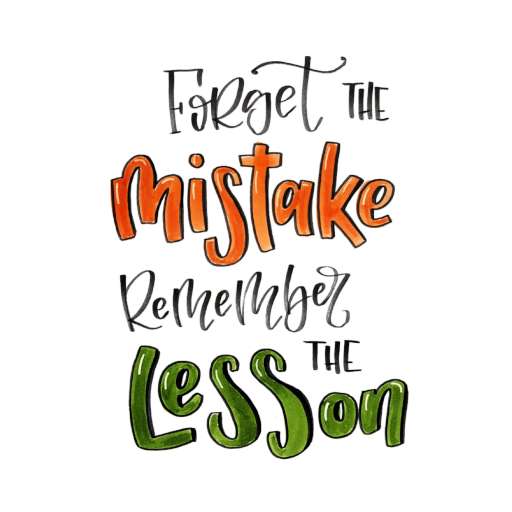 Forget THE
mistake
Remember
THE
Lesson